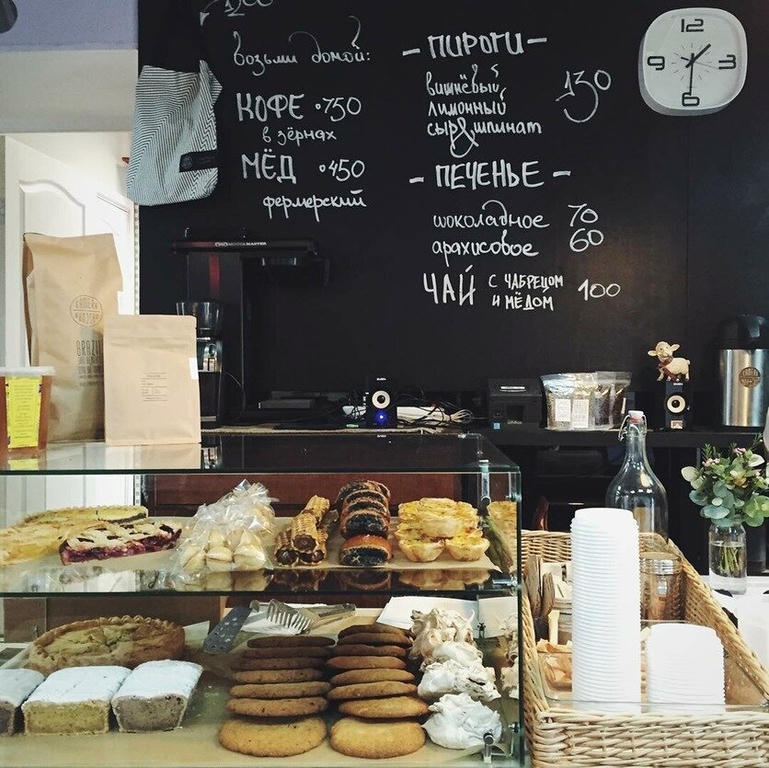 возьми домой:
КОФЕ •750
в зёрнах
МЁД •450
фермерский
– ПИРОГИ –
вишнёвый
лимонный
сыр&шпинат
130
– ПЕЧЕНЬЕ –
шоколадное 70
арахисовое 60
ЧАЙ с чабрецом и мёдом 100
12
9 3
6
MOCCAMASTER